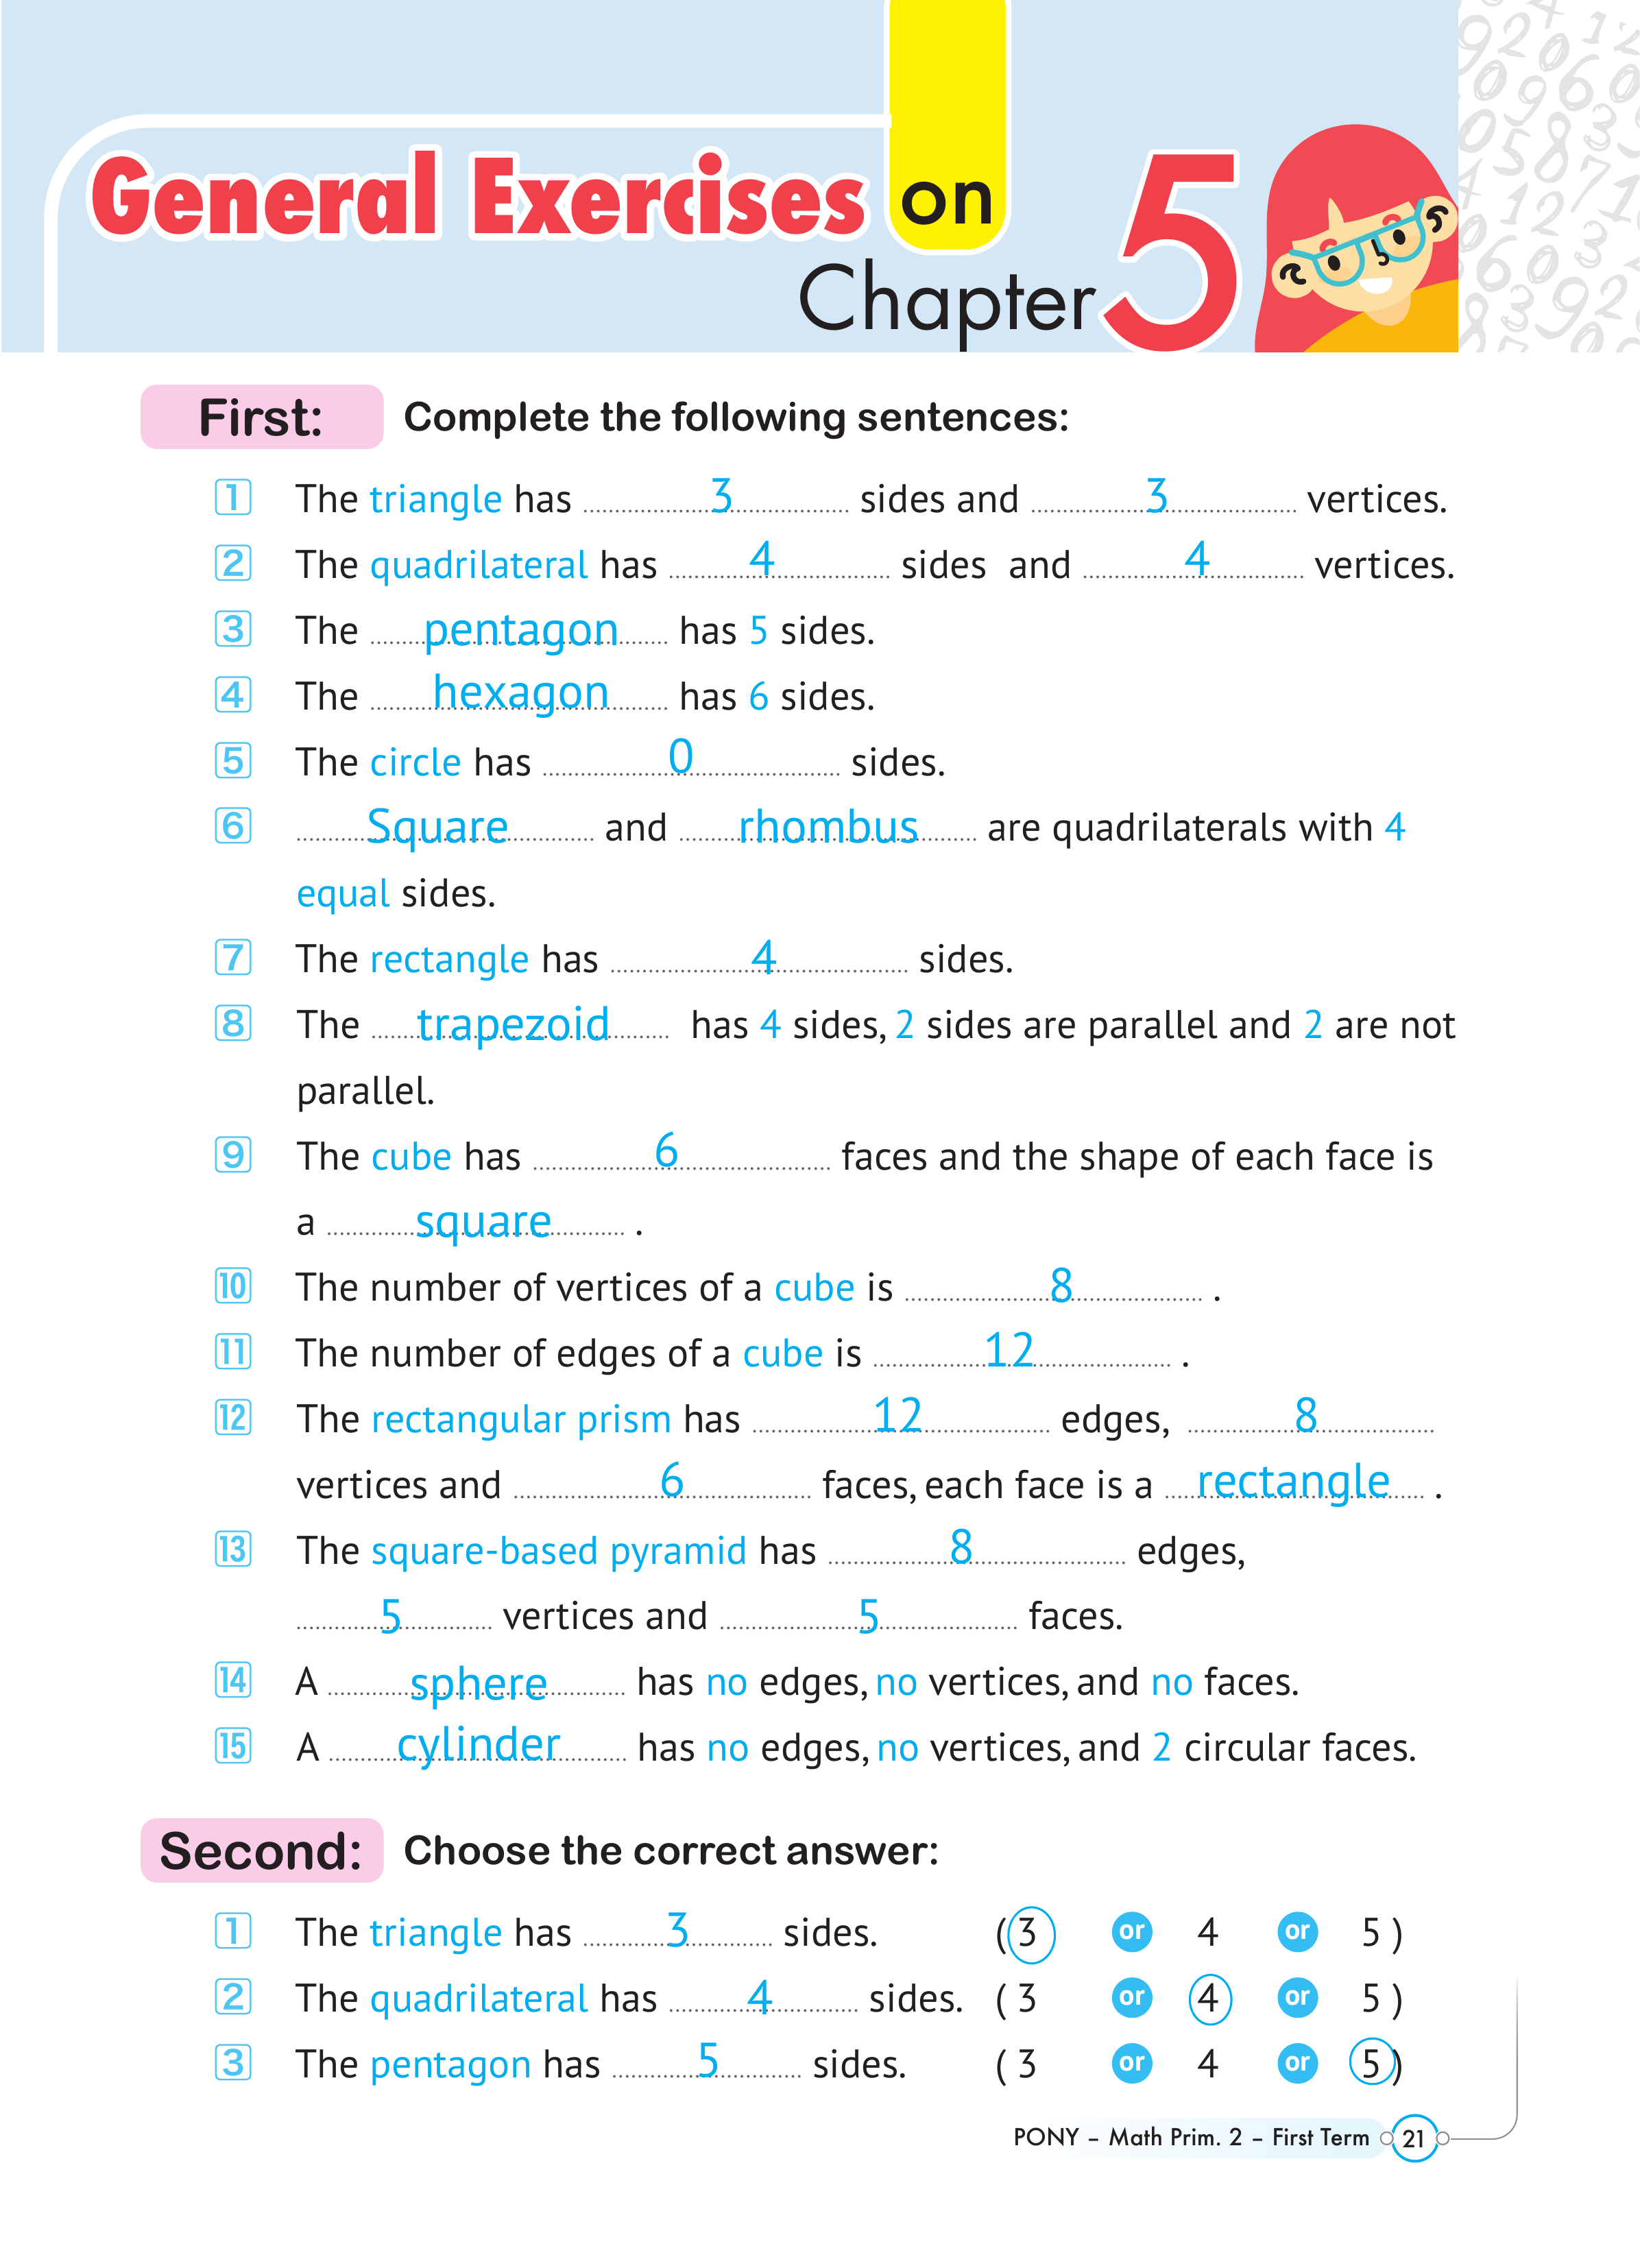 General Exercises on
Chapter 5
First: Complete the following sentences:
1 The triangle has 3 sides and 3 vertices.
2 The quadrilateral has 4 sides and 4 vertices.
3 The pentagon has 5 sides.
4 The hexagon has 6 sides.
5 The circle has 0 sides.
6 Square and rhombus are quadrilaterals with 4
equal sides.
7 The rectangle has 4 sides.
8 The trapezoid has 4 sides, 2 sides are parallel and 2 are not
parallel.
9 The cube has 6 faces and the shape of each face is
a square .
10 The number of vertices of a cube is 8 .
11 The number of edges of a cube is 12 .
12 The rectangular prism has 12 edges, 8
vertices and 6 faces, each face is a rectangle .
13 The square-based pyramid has 8 edges,
5 vertices and 5 faces.
14 A sphere has no edges, no vertices, and no faces.
15 A cylinder has no edges, no vertices, and 2 circular faces.
Second: Choose the correct answer:
1 The triangle has 3 sides. ( 3 or 4 or 5 )
2 The quadrilateral has 4 sides. ( 3 or 4 or 5 )
3 The pentagon has 5 sides. ( 3 or 4 or 5 )
PONY – Math Prim. 2 – First Term 21